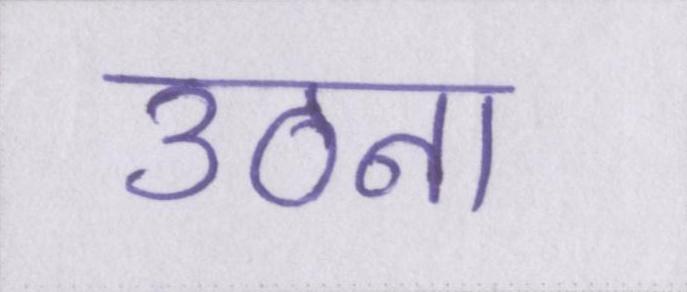 उठना